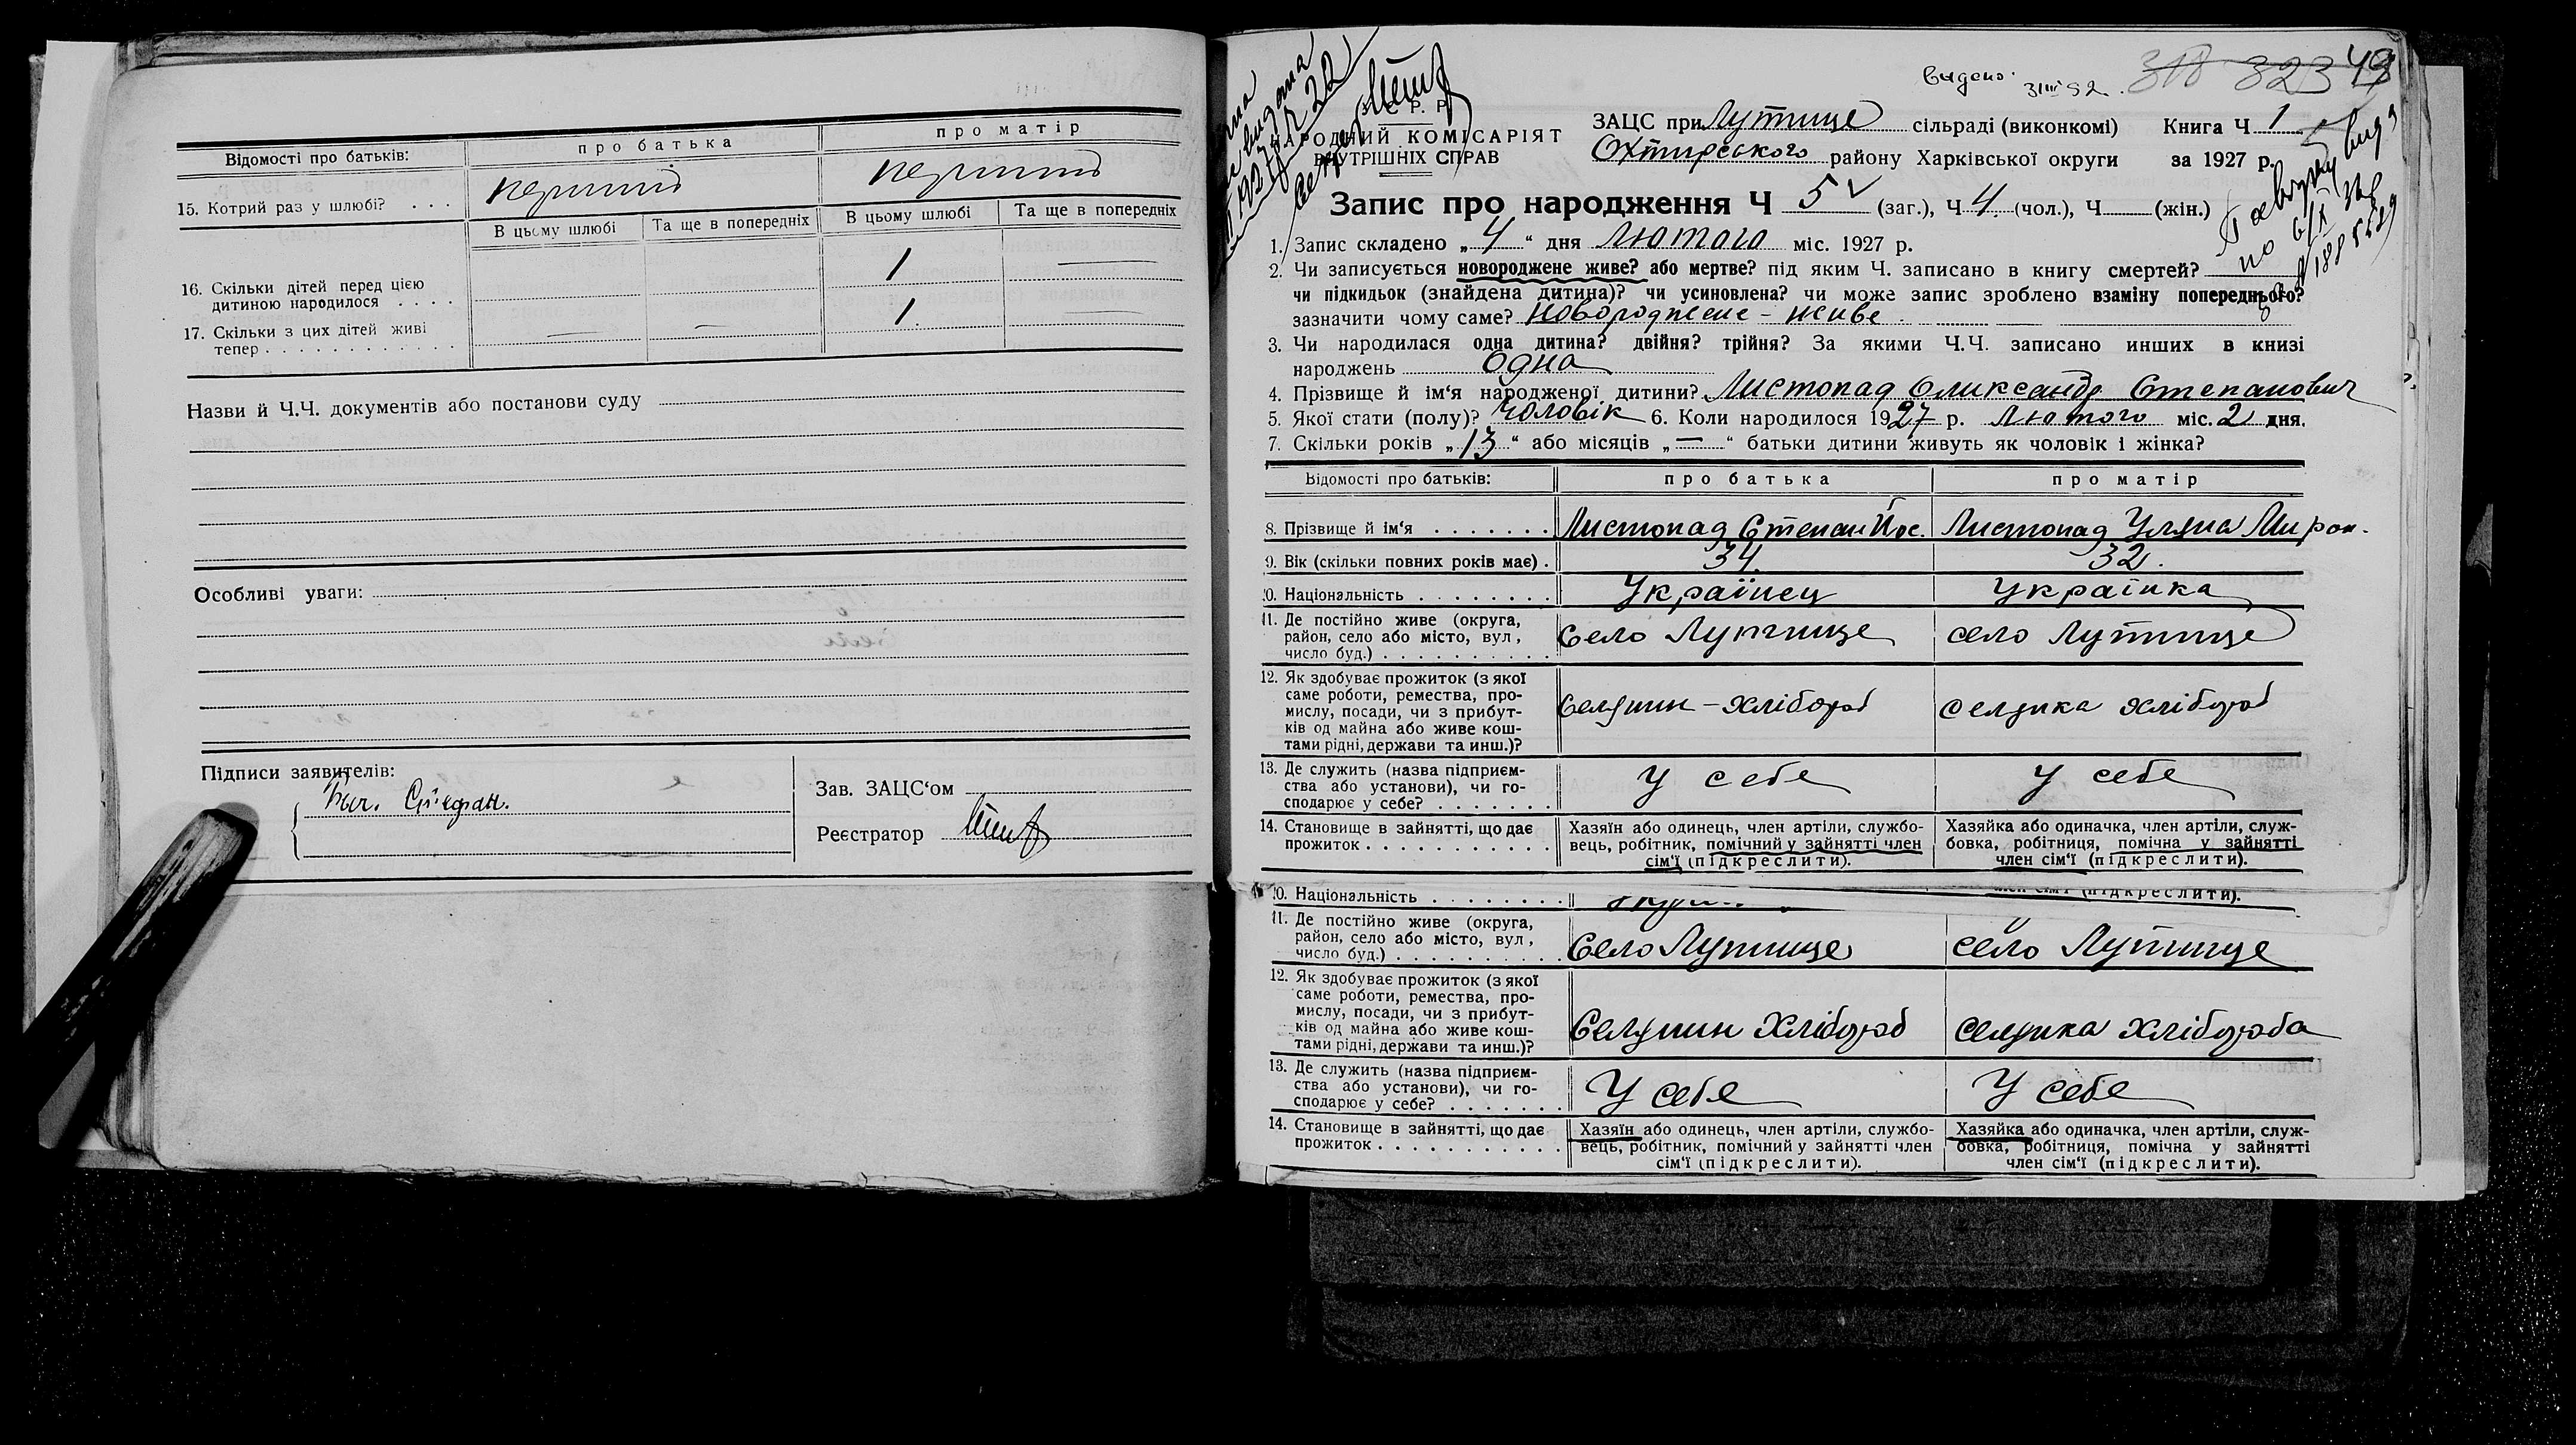 Відомості про батьків:
про батька
про матір
15. Котрий раз у шлюбі? . . .
перший
перший
В цьому шлюбі
Та ще в попередніх
В цьому шлюбі
Та ще в попередніх
16. Скільки дітей перед цією
дитиною народилося . . . .
1
17. Скільки з цих дітей живі
тепер . . . . . . . . . . . .
1
Назви й Ч.Ч. документів або постанови суду
Особливі уваги:
Підписи заявителів:
Зав. ЗАЦС‘ом
Реєстратор
323
С. Р. Р.
НАРОДНИЙ КОМІСАРІЯТ
ВНУТРІШНІХ СПРАВ
ЗАЦС при Лутище сільраді (виконкомі) Книга Ч 1
Охтирського району Харківської округи за 1927 р.
Запис про народження Ч 5 (заг.), Ч 4 (чол.), Ч (жін.)
1. Запис складено „ 4 “ дня Лютого міс. 1927 р.
2. Чи записується новороджене живе? або мертве? під яким Ч. записано в книгу смертей?
чи підкидьок (знайдена дитина)? чи усиновлена? чи може запис зроблено взаміну попереднього?
зазначити чому саме? Новороджене - живе
3. Чи народилася одна дитина? двійня? трійня? За якими Ч.Ч. записано инших в книзі
народжень одна
4. Прізвище й ім‘я народженої дитини? Листопад Олександр Степанович
5. Якої стати (полу)? чоловік 6. Коли народилося 1927 р. Лютого міс. 2 дня.
7. Скільки років „ 13 “ або місяців „ — “ батьки дитини живуть як чоловік і жінка?
Відомості про батьків:
про батька
про матір
8. Прізвище й ім‘я . . . . . . .
Листопад Степан Йос.
Листопад Уляна Мирон.
9. Вік (скільки повних років має) .
34.
32.
0. Національність . . . . . . . .
Українец
Українка
11. Де постійно живе (округа,
район, село або місто, вул,
число буд.) . . . . . . . . . .
Село Лутище
село Лутище
12. Як здобуває прожиток (з якої
саме роботи, ремества, про-
мислу, посади, чи з прибут-
ків од майна або живе кош-
тами рідні, держави та инш.)?
Селянин - хлібороб
селянка хлібороб
13. Де служить (назва підприєм-
ства або установи), чи го-
сподарює у себе? . . . . . . .
У себе
У себе
14. Становище в зайнятті, що дає
прожиток . . . . . . . . . . .
Хазяїн або одинець, член артіли, службо-
вець, робітник, помічний у зайнятті член
сім‘ї (підкреслити).
Хазяйка або одиначка, член артіли, служ-
бовка, робітниця, помічна у зайнятті
член сім‘ї (підкреслити).
0. Національність . . . . . . . .
член сім‘ї (підкреслити).
11. Де постійно живе (округа,
район, село або місто, вул,
число буд.) . . . . . . . . . .
Село Лутище
село Лутище
12. Як здобуває прожиток (з якої
саме роботи, ремества, про-
мислу, посади, чи з прибут-
ків од майна або живе кош-
тами рідні, держави та инш.)?
Селянин хлібороб
селянка хлібороба
13. Де служить (назва підприєм-
ства або установи), чи го-
сподарює у себе? . . . . . . .
У себе
У себе
14. Становище в зайнятті, що дає
прожиток . . . . . . . . . . .
Хазяїн або одинець, член артіли, службо-
вець, робітник, помічний у зайнятті член
сім‘ї (підкреслити).
Хазяйка або одиначка, член артіли, служ-
бовка, робітниця, помічна у зайнятті
член сім‘ї (підкреслити).